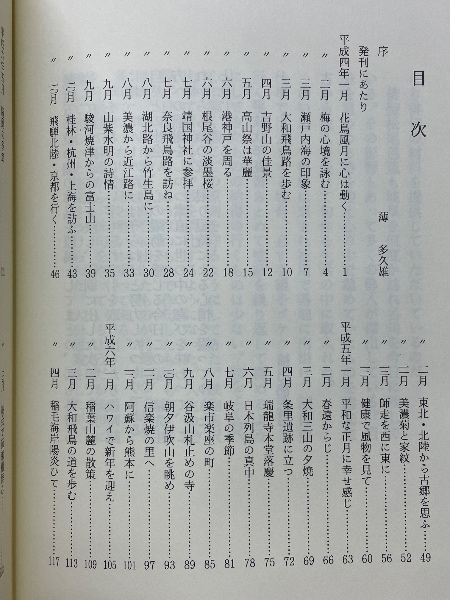 目次
序 薄 多久雄
発刊にあたり
平成四年一月 花鳥風月に心は動く……1
〃 二月 梅の心境を詠む……4
〃 三月 瀬戸内海の印象……7
〃 三月 大和飛鳥路を歩む……10
〃 四月 吉野山の佳景……12
〃 五月 高山祭は華麗……15
〃 六月 港神戸を周る……18
〃 六月 根尾谷の淡墨桜……22
〃 七月 靖国神社に参拝……24
〃 七月 奈良飛鳥路を訪ね……28
〃 八月 湖北路から竹生島に……30
〃 八月 美濃から近江路に……33
〃 九月 山紫水明の詩情……35
〃 九月 駿河焼津からの富士山……39
〃 十月 桂林・杭州・上海を訪ふ……43
〃 十月 飛騨北陸・京都を行く……46
〃 十一月 東北・北陸から古郷を思ふ……49
〃 十一月 美濃菊と家紋……52
〃 十二月 師走を西に東に……56
〃 十二月 健康で風物を見て……60
平成五年一月 平和な正月に幸せ感じ……63
〃 二月 春遠からじ……66
〃 三月 大和三山の夕焼……69
〃 四月 条里遺跡に立つ……72
〃 五月 瑞龍寺本堂落慶……75
〃 六月 日本列島の真中……78
〃 七月 岐阜の季節……81
〃 八月 楽市楽座の町……85
〃 九月 谷汲山札止めの寺……89
〃 十月 朝夕伊吹山を眺め……93
〃 十一月 信楽焼の里へ……97
〃 十二月 阿蘇から熊本に……101
平成六年一月 ハワイで新年を迎え……105
〃 二月 稲葉山麓の散策……109
〃 三月 大和飛鳥の道を歩む……113
〃 四月 稲毛海岸陽炎ひて……117